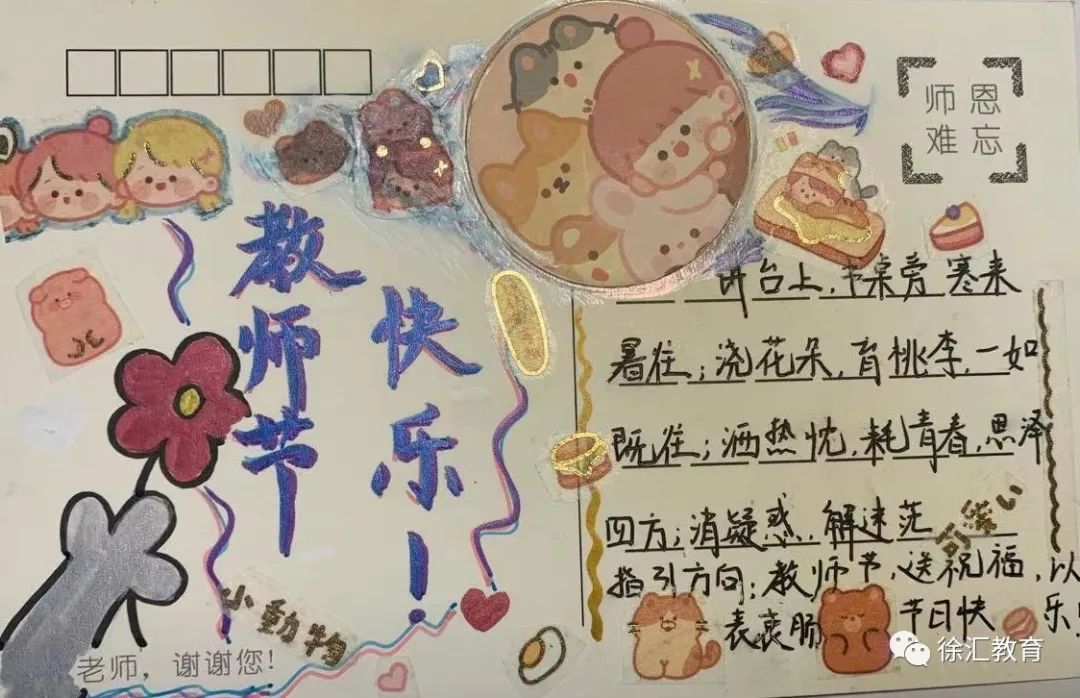 师恩
难忘
教师节
快乐！
讲台上，书桌旁，寒来
暑往；浇花朵，育桃李，一如
既往；洒热忱，耗青春，恩泽
四方；消疑惑，解迷茫
指引方向；教师节，送祝福，以
表衷肠 节日快乐！
可愛い
小動物
老师，谢谢您！
徐汇教育